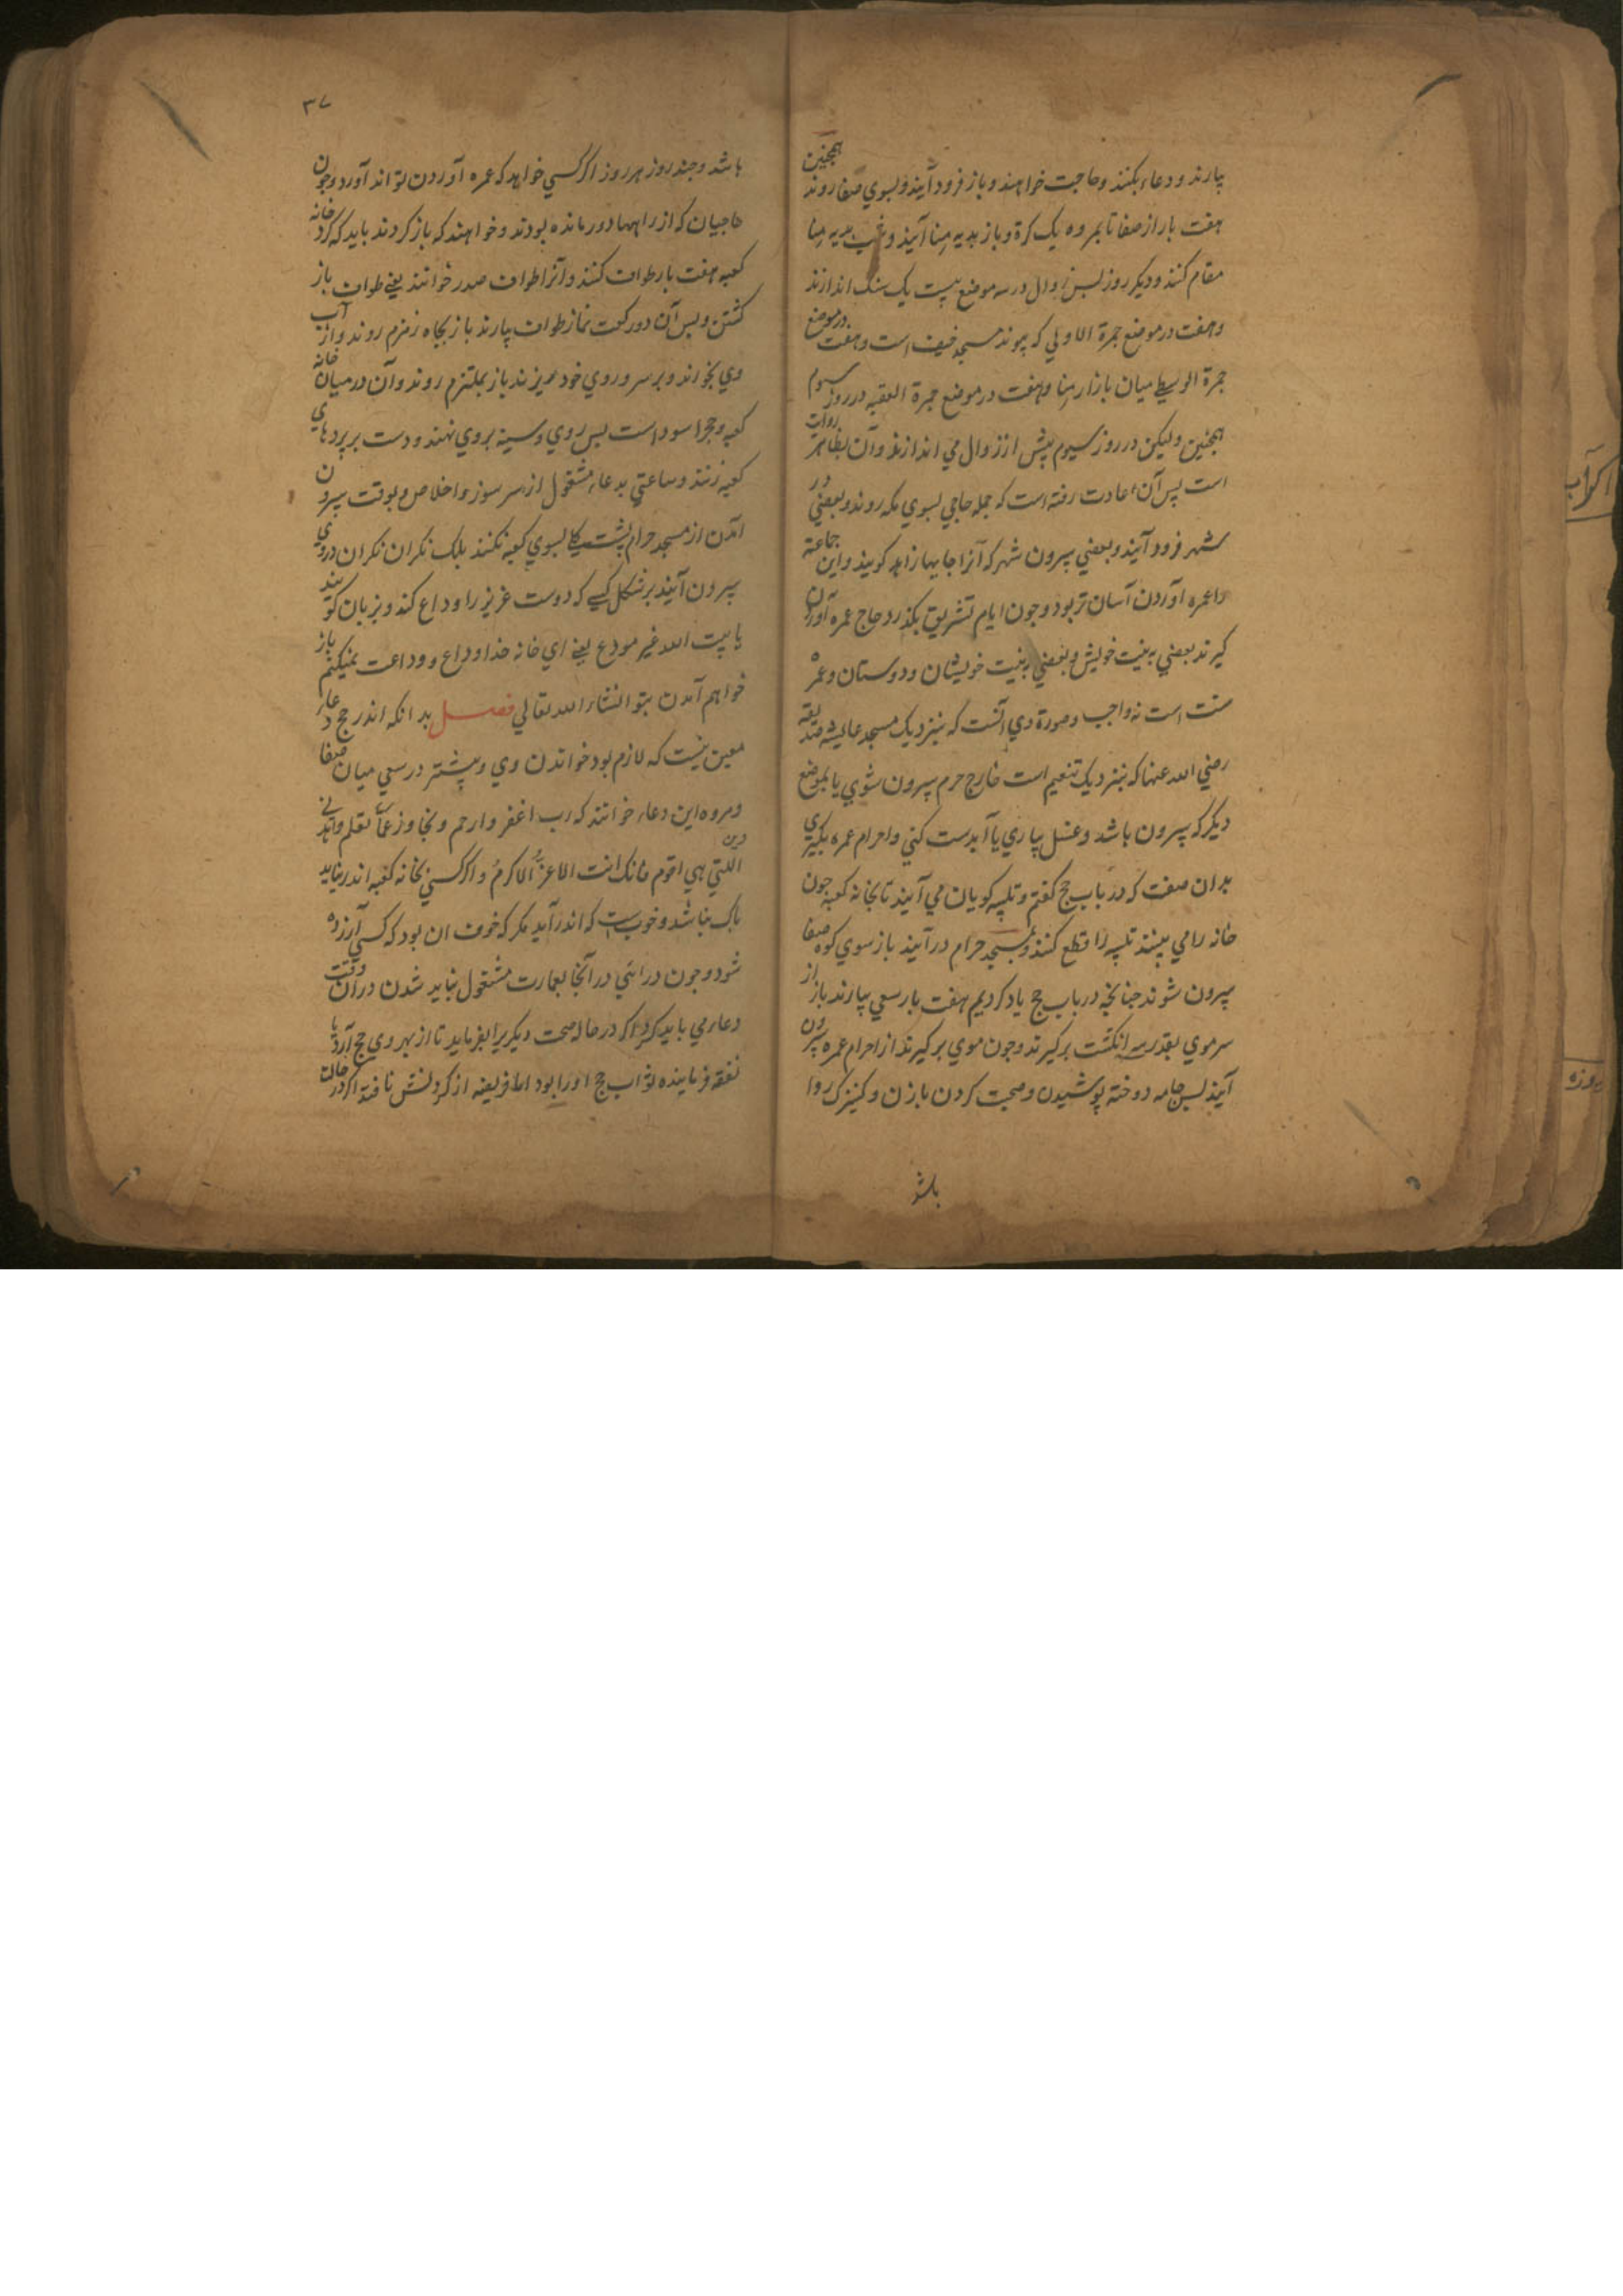 بیارند و دعاء بکنند و حاجت خواهند و باز فرود آیند و بسوي صفا روند همچنین
هفت بار از صفا تا بمروه یک کرة و باز بدیه منا آیند و شب بدیه منا
مقام کنند و دیکر روز پس زوال در سه موضع بیست یک سنک اندازند
و هفت در موضع جمرة الاولي که پیوند مسجد خیف است و هفت در موضع
جمرة الوسطي میان بازار منا و هفت در موضع جمرة العقبه در روز سیوم
همچنین ولیکن در روز سیوم پیش از زوال مي اندازند و آن بظاهر روات
است پس آن عادت رفته است که جمله حاجي بسوي مکه روند و بعضي در
شهر فرود آیند و بعضي بیرون شهر که آنرا جایها زاهد کویند و این جماعة
را عمره آوردن آسان تر بود و چون ایام تشریق بکذرد حاج عمره آوردن
کیرند بعضي به نیت خویش و بعضي به نیت خویشان و دوستان و عمره
سنت است نه واجب و صورة وي آنست که بنزدیک مسجد عایشه صدیقه
رضي الله عنها که بنزدیک تنعیم است خارج حرم بیرون شوي یا بموضع
دیکر که بیرون باشد و غسل بیاري یا آبدست کني و احرام عمره بکیري
بدان صفت که در باب حج کفتم و تلبیه کویان مي آیند تا بخانه کعبه جون
خانه را مي بینند تلبیه را قطع کنند و بمسجد حرام در آیند باز سوي کوه صفا
بیرون شوند جنانچه در باب حج یاد کردیم هفت بار سعي بیارند باز از
سر موي بقدر سه انکشت برکیرند و جون موي برکیرند از احرام عمره بیرون
آیند پس جامه دوخته پوشیدن و صحبت کردن با زن و کنیزک روا
باشد
۳۷
باشد و چند روز هر روز اکر کسي خواهد که عمره آوردن تواند آورد و جون
حاجیان که از راهها دور مانده بودند و خواهند که باز کردند باید که کرد خانه
کعبه هفت بار طواف کنند و آنرا طواف صدر خوانند یعني طواف باز
کشتن و پس آن دو رکعت نماز طواف بیارند باز بجاه زمزم روند و از آب
وي بخوراند و بر سر و روي خود بریزند باز بملتزم روند و آن درمیان خانه
کعبه و حجر اسود است پس روي و سینه بروي نهند و دست بر پردهاي
کعبه زنند و ساعتي بدعاء مشغول از سر سوز و اخلاص و بوقت بیرون
آمدن از مسجد حرام پشت بسوي کعبه نکنند بلک نکران نکران در وي
بیرون آیند بر شکل کسي که دوست عزیز را وداع کند و بزبان کویند
یا بیت الله غیر مودع یعني اي خانه خدا وداع و وداعت نمیکنم باز
خواهم آمدن بتو انشاء الله تعالي فصل بدانکه اندر حج دعاء
معین نیست که لازم بود خواندن وي و بیشتر در سعي میان صفا
و مروه این دعاء خوانند که رب اغفر وارحم و تجاوز عما تعلم واهدني
اللتي هي اقوم فانک انت الاعز الاکرم و اکر کسي بخانه کعبه اندر نیاید
باک نباشد و خوب است که اندر آید مکر که خوف ان بود که کسي آزرده
شود و جون در آیي در آنجا بعمارت مشغول نباید شدن در آن وقت
دعاء مي باید کرد و اکر در حال صحت دیکریرا بفرماید تا از بهر وي حج آرد با
نفقه فرماینده ثواب حج اورا بود اما فریضه از کردنش نافتد اکر در حالت